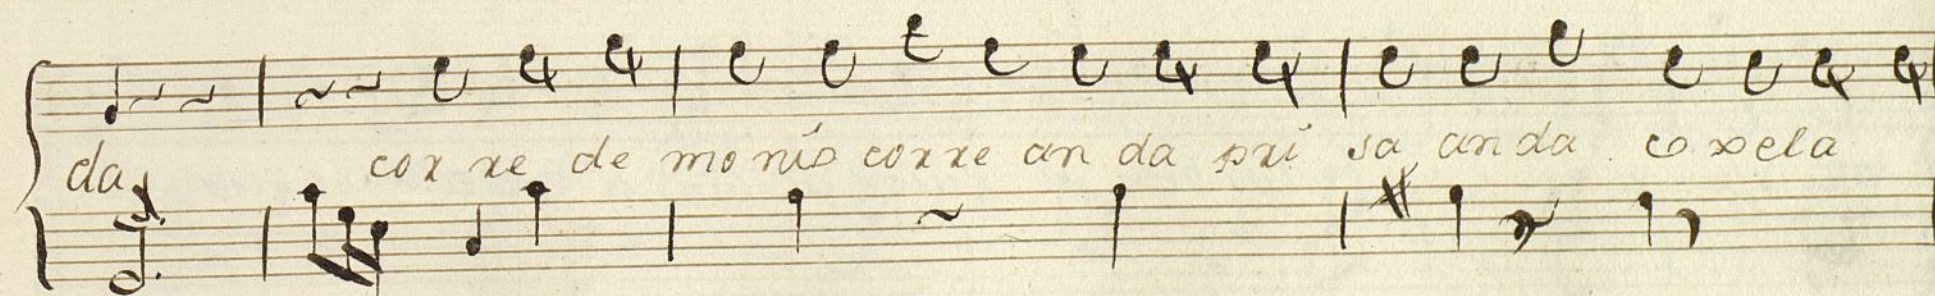 da corre de monio corre an da pri sa anda co xela